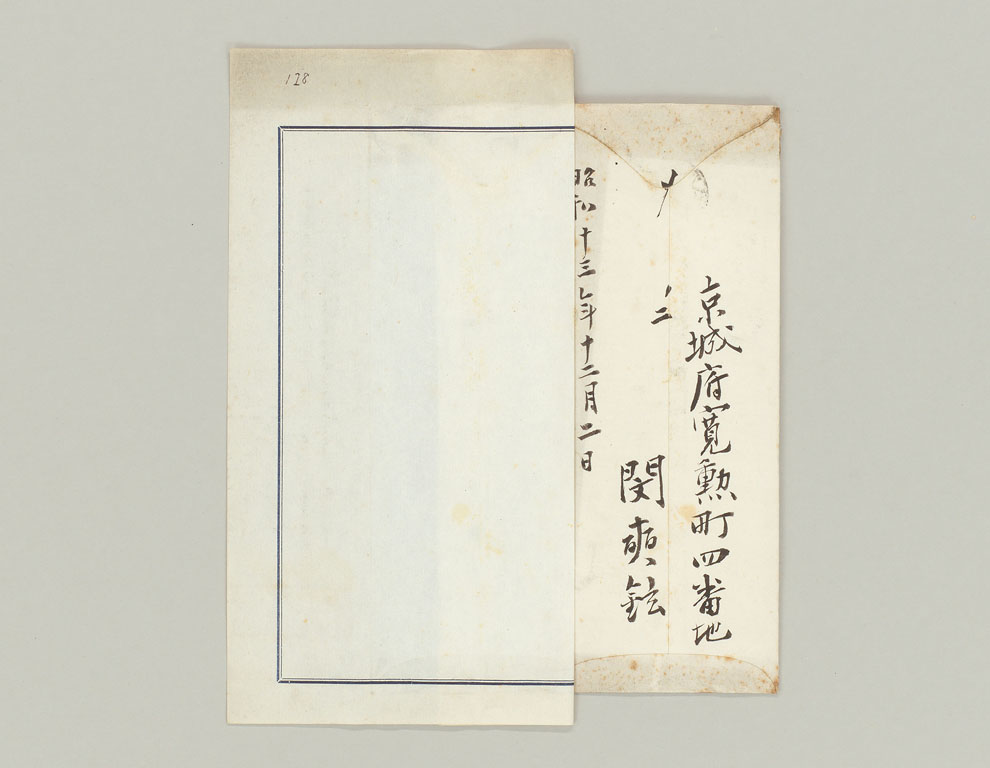 128
京城府寬勲町四番地
閔鉉
昭和十三年十二月二日